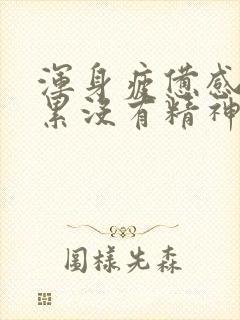 渾身疲憊感
累沒有精神
圖樣先森